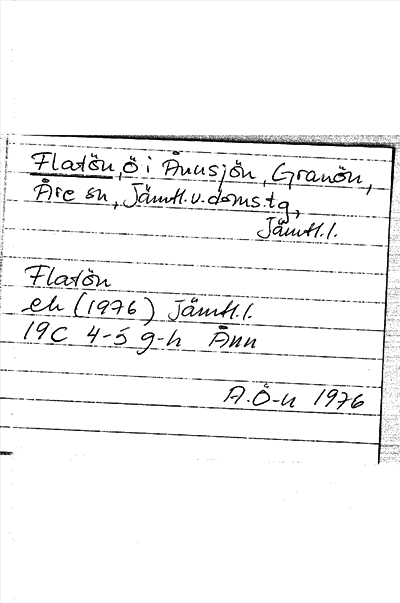 Flatön, ö i Ånnsjön, Granön,
Åre sn, Jämtl.v.doms.tg,
Jämtl.l.
Flatön
ek (1976) Jämtl.l.
19C 4-5 g-h Ånn
A.Ö-n 1976